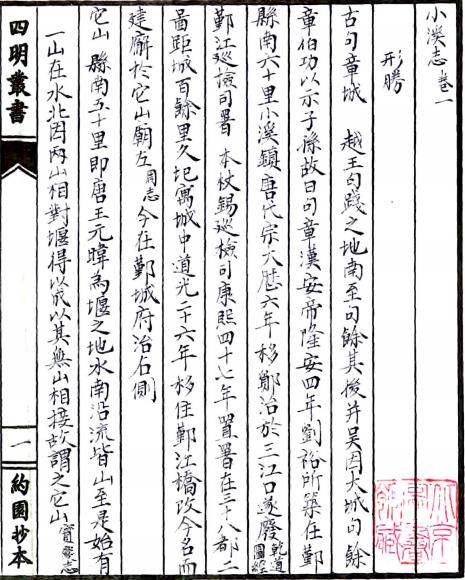 小溪志 卷一
形勝
古句章城 越王句踐之地南至句餘其後并吴因大城句餘
章伯功以示子孫故曰句章漢安帝隆安四年劉裕所築在鄞
縣南六十里小溪鎮唐代宗大歷六年移鄮治於三江口遂廢乾道圖經
鄞江廵檢司署 本杖錫廵檢司康熙四十七年置署在三十八都二
啚距城百餘里久圯寓城中道光二十六年移住鄞江橋改今名而
建廨於它山廟左周志今在鄞城府治右側
它山 縣南五十里即唐王元暐為堰之地水南沿流皆山至是始有
一山在水北因两山相對堰得以成以其無山相接故謂之它山寶慶志
四明叢書
一
約園抄本